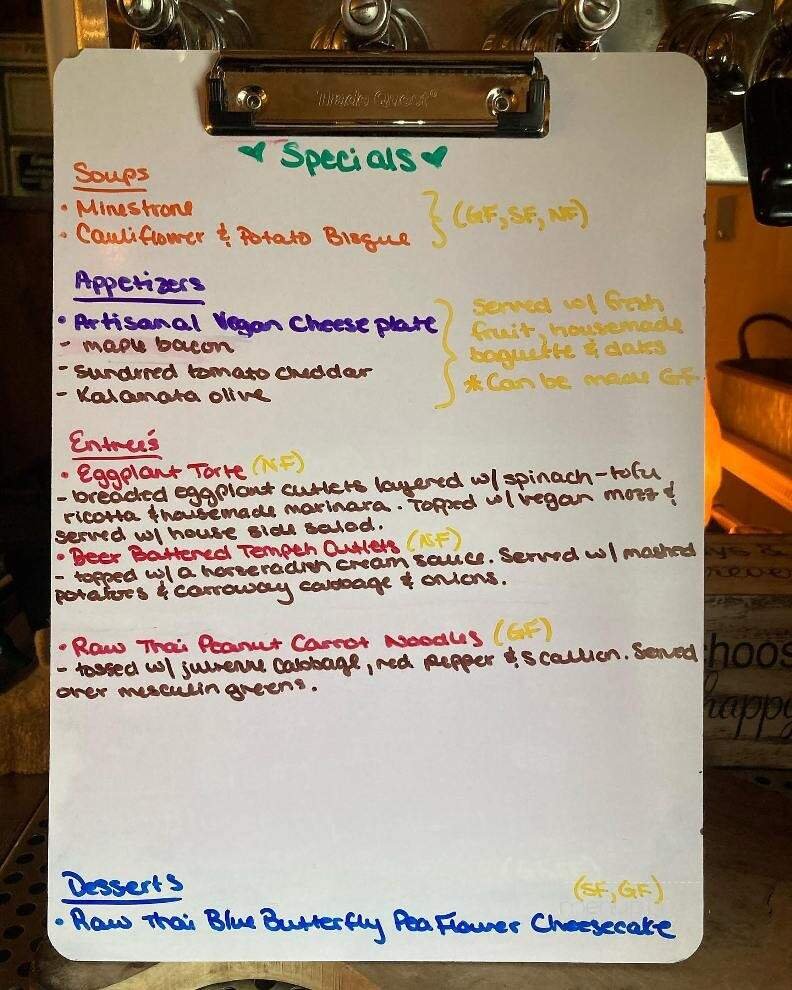 Trade Quest®
♥ Specials ♥
Soups
• Minestrone
• Cauliflower & Potato Bisque
(GF, SF, NF)
Appetizers
• Artisanal Vegan Cheese plate
- maple bacon
- sundried tomato cheddar
- Kalamata olive
Served w/ fresh
fruit, housemade
baguette & dates
* Can be made GF
Entree's
• Eggplant Torte (NF)
- breaded eggplant cutlets layered w/ spinach-tofu
ricotta & housemade marinara. Topped w/ vegan mozz &
served w/ house side salad.
• Beer Battered Tempeh Cutlets (NF)
- topped w/ a horseradish cream sauce. Served w/ mashed
potatoes & carroway cabbage & onions.
• Raw Thai Peanut Carrot Noodles (GF)
- tossed w/ julienne cabbage, red pepper & scallion. Served
over mesculin greens.
Desserts
(SF, GF)
• Raw Thai Blue Butterfly Pea Flower Cheesecake
happy